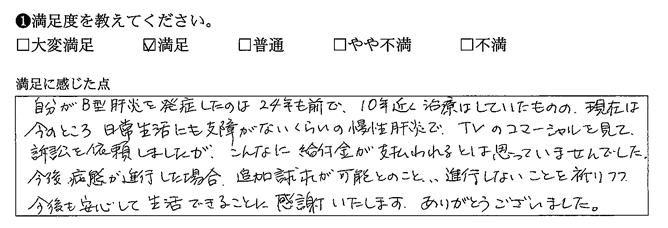 ❶満足度を教えてください。
□大変満足 ☑満足 □普通 □やや不満 □不満
満足に感じた点
自分がB型肝炎を発症したのは24年も前で、10年近く治療はしていたものの、現在は
今のところ日常生活にも支障がないくらいの慢性肝炎で、TVのコマーシャルを見て、
訴訟を依頼しましたが、こんなに給付金が支払われるとは思っていませんでした。
今後、病態が進行した場合、追加請求が可能とのこと、、進行しないことを祈りつつ
今後も安心して生活できることに感謝いたします。ありがとうございました。